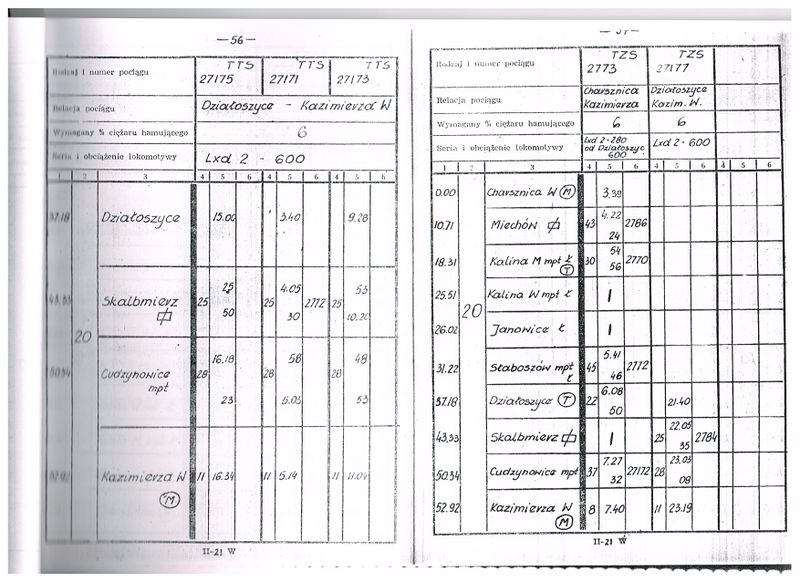 — 56 —
Rodzaj i numer pociągu
TTS 27175
TTS 27171
TTS 27173
Relacja pociągu
Działoszyce - Kazimierza W
Wymagany % ciężaru hamującego
6
Seria i obciążenie lokomotywy
Lxd 2 - 600
1 2 3 4 5 6 4 5 6 4 5 6
37.18 Działoszyce 15.00 3.40 9.28
43.33 Skalbmierz 25 25 25 4.05 2772 25 53
50 30 10.20
20
50.34 Cudzynowice mpt 28 16.18 28 58 28 48
23 5.03 53
52.92 Kazimierza W 11 16.34 11 5.14 11 11.04
M
II-21 W
— 57 —
Rodzaj i numer pociągu
TZS 2773
TZS 27177
Relacja pociągu
Charsznica Kazimierza
Działoszyce Kazim. W.
Wymagany % ciężaru hamującego
6 6
Seria i obciążenie lokomotywy
Lxd 2-280 od Działoszyc 600
Lxd 2 - 600
1 2 3 4 5 6 4 5 6 4 5 6
0.00 Charsznica W M 3.39
10.71 Miechów 43 4.22 2786
24
18.31 Kalina M mpt Ł T 30 54 2770
56
25.51 Kalina W mpt Ł |
20
26.02 Janowice Ł |
31.22 Słaboszów mpt Ł 45 5.41 2772
46
37.18 Działoszyce T 22 6.08 21.40
50
43.33 Skalbmierz | 25 22.05 2784
35
50.34 Cudzynowice mpt 37 7.27 27172 28 23.03
32 08
52.92 Kazimierza W M 8 7.40 11 23.19
II-21 W